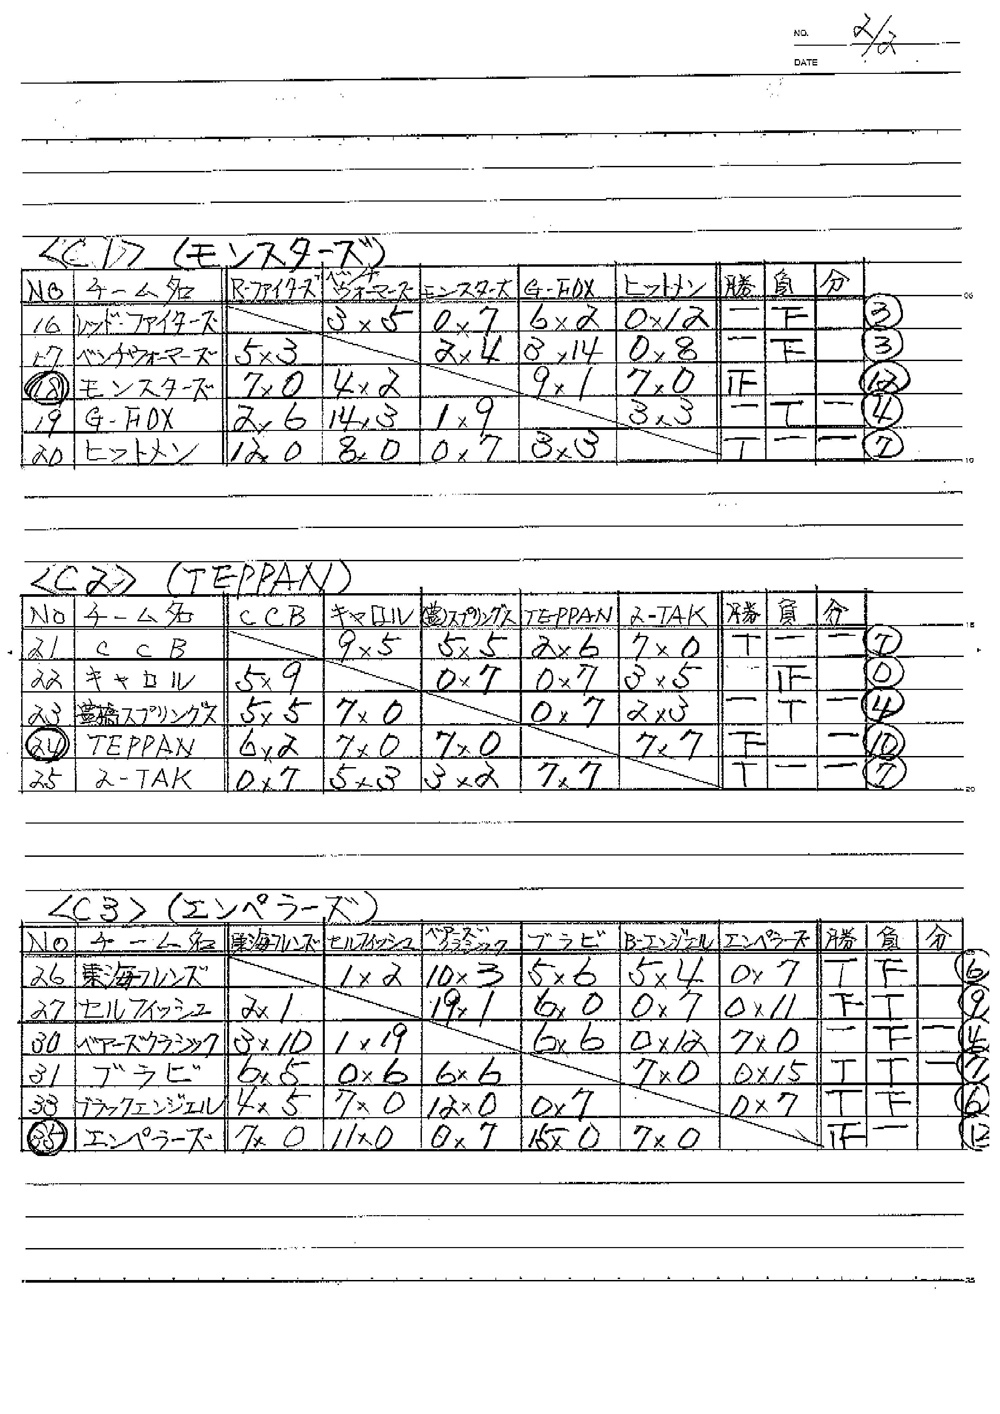 NO. 2/2
DATE
<C1> (モンスターズ)
No チーム名 R-ファイターズ ベンチウォーマーズ モンスターズ G-FOX ヒットメン 勝 負 分
16 レッド・ファイターズ 3×5 0×7 6×2 0×12 一 下 ③
17 ベンチウォーマーズ 5×3 2×4 3×14 0×8 一 下 ③
⑱ モンスターズ 7×0 4×2 9×1 7×0 正 ⑫
19 G-FOX 2×6 14×3 1×9 3×3 一 T 一 ④
20 ヒットメン 12×0 8×0 0×7 3×3 T 一 一 ⑦
<C2> (TEPPAN)
No チーム名 CCB キャロル 豊スプリングス TEPPAN 2-TAK 勝 負 分
21 CCB 9×5 5×5 2×6 7×0 T 一 一 ⑦
22 キャロル 5×9 0×7 0×7 3×5 正 ⓪
23 豊橋スプリングス 5×5 7×0 0×7 2×3 一 T 一 ④
㉔ TEPPAN 6×2 7×0 7×0 7×7 下 一 ⑩
25 2-TAK 0×7 5×3 3×2 7×7 T 一 一 ⑦
<C3> (エンペラーズ)
No チーム名 東海フレンズ セルフィッシュ ベアーズクラシック ブラビ B-エンジェル エンペラーズ 勝 負 分
26 東海フレンズ 1×2 10×3 5×6 5×4 0×7 T 下 ⑥
27 セルフィッシュ 2×1 19×1 6×0 0×7 0×11 下 T ⑨
30 ベアーズクラシック 3×10 1×19 6×6 0×12 7×0 一 下 一 ④
31 ブラビ 6×5 0×6 6×6 7×0 0×15 T T 一 ⑦
33 ブラックエンジェル 4×5 7×0 12×0 0×7 0×7 T 下 ⑥
㉟ エンペラーズ 7×0 11×0 0×7 15×0 7×0 正 一 ⑫